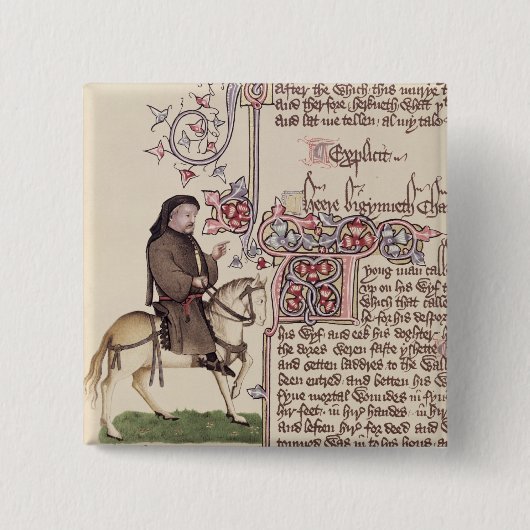 after the which this murye t
and therfore herkneth what y
and lat me tellen al my tale
Explicit
Heere bigynneth Cha
yong man calle
up on his wyf
which that calle
he for his despor
his wyf and eek his doghter
the dores weren faste yshette
and setten laddres to the wal
been entred and betten his w
fyve mortal woundes in fyve
hir feet in hir handes in hir
and leften hir for deed and
torned was in to his hous and